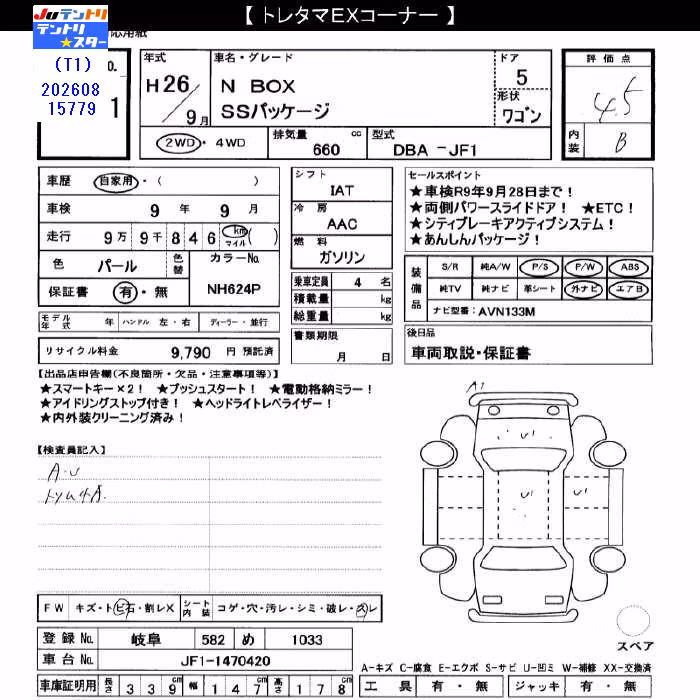 【 トレタマEXコーナー 】
JUテントリ
テントリ
★スター
応用紙
(T1)
202608
15779
1
年式
H26/9月
車名・グレード
N BOX
SSパッケージ
ドア
5
形状
ワゴン
評価点
4.5
内装
B
2WD・4WD
排気量 660 cc
型式 DBA -JF1
車歴 自家用・( )
車検 9年 9月
走行 9万 9千 8 4 6 km マイル ( )
色 パール 色替
カラーNo. NH624P
保証書 有・無
シフト
IAT
冷房
AAC
燃料
ガソリン
乗車定員 4 名
積載量 kg
総重量 kg
書類期限
月 日
モデル年式 年 ハンドル 左・右 ディーラー・並行
リサイクル料金 9,790 円 預託済
セールスポイント
★車検R9年9月28日まで！
★両側パワースライドドア！ ★ETC！
★シティブレーキアクティブシステム！
★あんしんパッケージ！
装備品
S/R 純A/W P/S P/W ABS
純TV 純ナビ 革シート 外ナビ エアB
ナビ型番： AVN133M
後日品
車両取説・保証書
【出品店申告欄(不良箇所・欠品・注意事項等)】
★スマートキー×2！ ★プッシュスタート！ ★電動格納ミラー！
★アイドリングストップ付き！ ★ヘッドライトレベライザー！
★内外装クリーニング済み！
【検査員記入】
A・U
A1
U1
U1
U1
FW キズ・トビ石・割レX
シート内装 コゲ・穴・汚レ・シミ・破レ・スレ
登録No. 岐阜 582 め 1033
車台No. JF1-1470420
車庫証明用 長さ 339cm 幅 147cm 高さ 178cm
スペア
A-キズ C-腐食 E-エクボ S-サビ U-凹ミ W-補修 XX-交換済
工具 有・無 ジャッキ 有・無